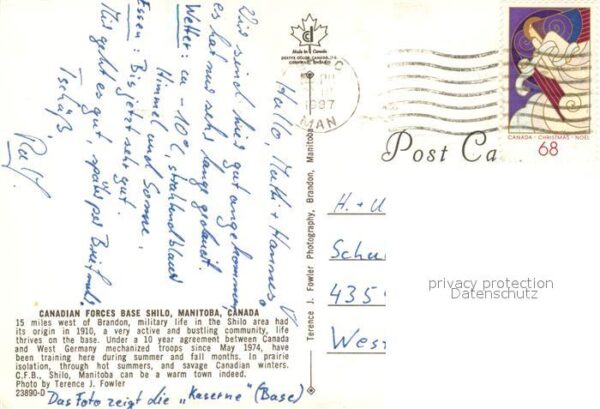 Hallo Mutti + Hannes!
Wir sind hier gut angekommen,
es hat nur sehr lange gedauert.
Wetter: ca -10°C, strahlendblauer
Himmel und Sonne.
Essen: Bis jetzt sehr gut.
Mir geht es gut, später per Brief mehr.
Tschüß,
Ralf.
CANADIAN FORCES BASE SHILO, MANITOBA, CANADA
15 miles west of Brandon, military life in the Shilo area had
its origin in 1910, a very active and bustling community, life
thrives on the base. Under a 10 year agreement between Canada
and West Germany mechanized troops since May 1974, have
been training here during summer and fall months. In prairie
isolation, through hot summers, and savage Canadian winters.
C.F.B., Shilo, Manitoba can be a warm town indeed.
Photo by Terence J. Fowler
23890-D
Das Foto zeigt die „Kaserne" (Base)
Made in Canada
Terence J. Fowler Photography, Brandon, Manitoba
1987
MAN
Post Ca
CANADA · CHRISTMAS · NOËL
68
H. + U
Schu
435
Wes
privacy protection
Datenschutz